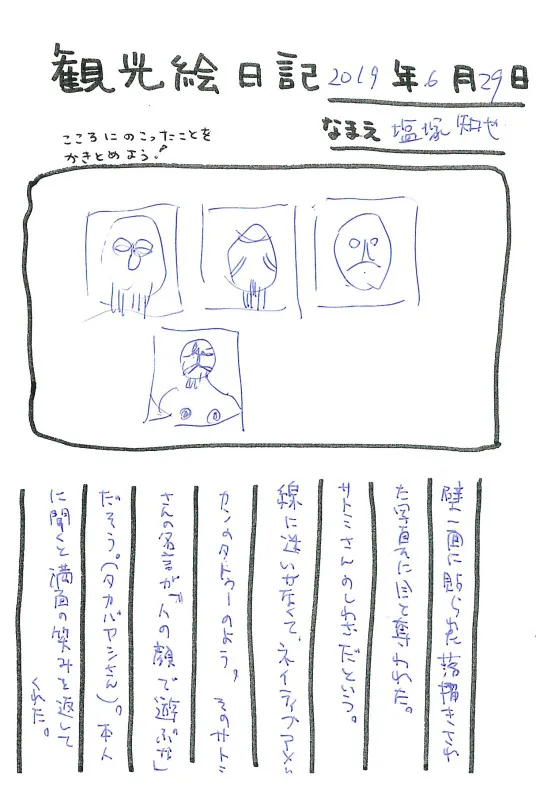 観光絵日記 2019年6月29日
なまえ 塩塚知也
こころにのこったことを
かきとめよう!
壁一面に貼られた落描きされ
た写真に目を奪われた。
サトミさんのしわざだという。
線に迷いがなくて、ネイティブアメリ
カンのタトゥーのよう。そのサトミ
さんの名言が「人の顔で遊ぶな」
だそう。(タカバヤシさん)。本人
に聞くと満面の笑みを返して
くれた。